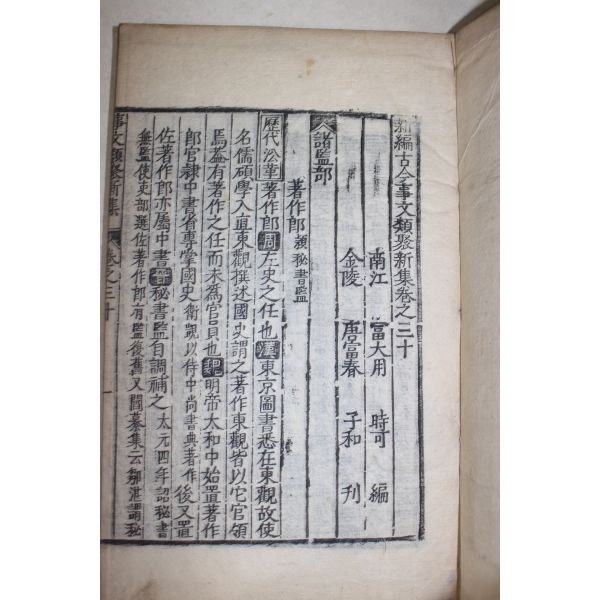 新編古今事文類聚新集卷之三十
南江 富大用 時可 編
金陵 唐富春 子和 刊
諸監部
著作郎 秘書監
歷代沿革 著作郎 周 左史之任也 漢 東京圖書悉在東觀故使
名儒碩學入直東觀撰述國史謂之著作東觀皆以它官領
焉蓋有著作之任而未為官員也 魏 明帝太和中始置著作
郎官隸中書省專掌國史 衛覬以侍中尚書典著作 後又置
佐著作郎亦屬中書 晉 秘書監自調補之 太元四年詔秘書
無監使吏部選佐著作郎有監復舊又閻纂集云鄒湛謂秘
事文類聚新集 卷之三十 一